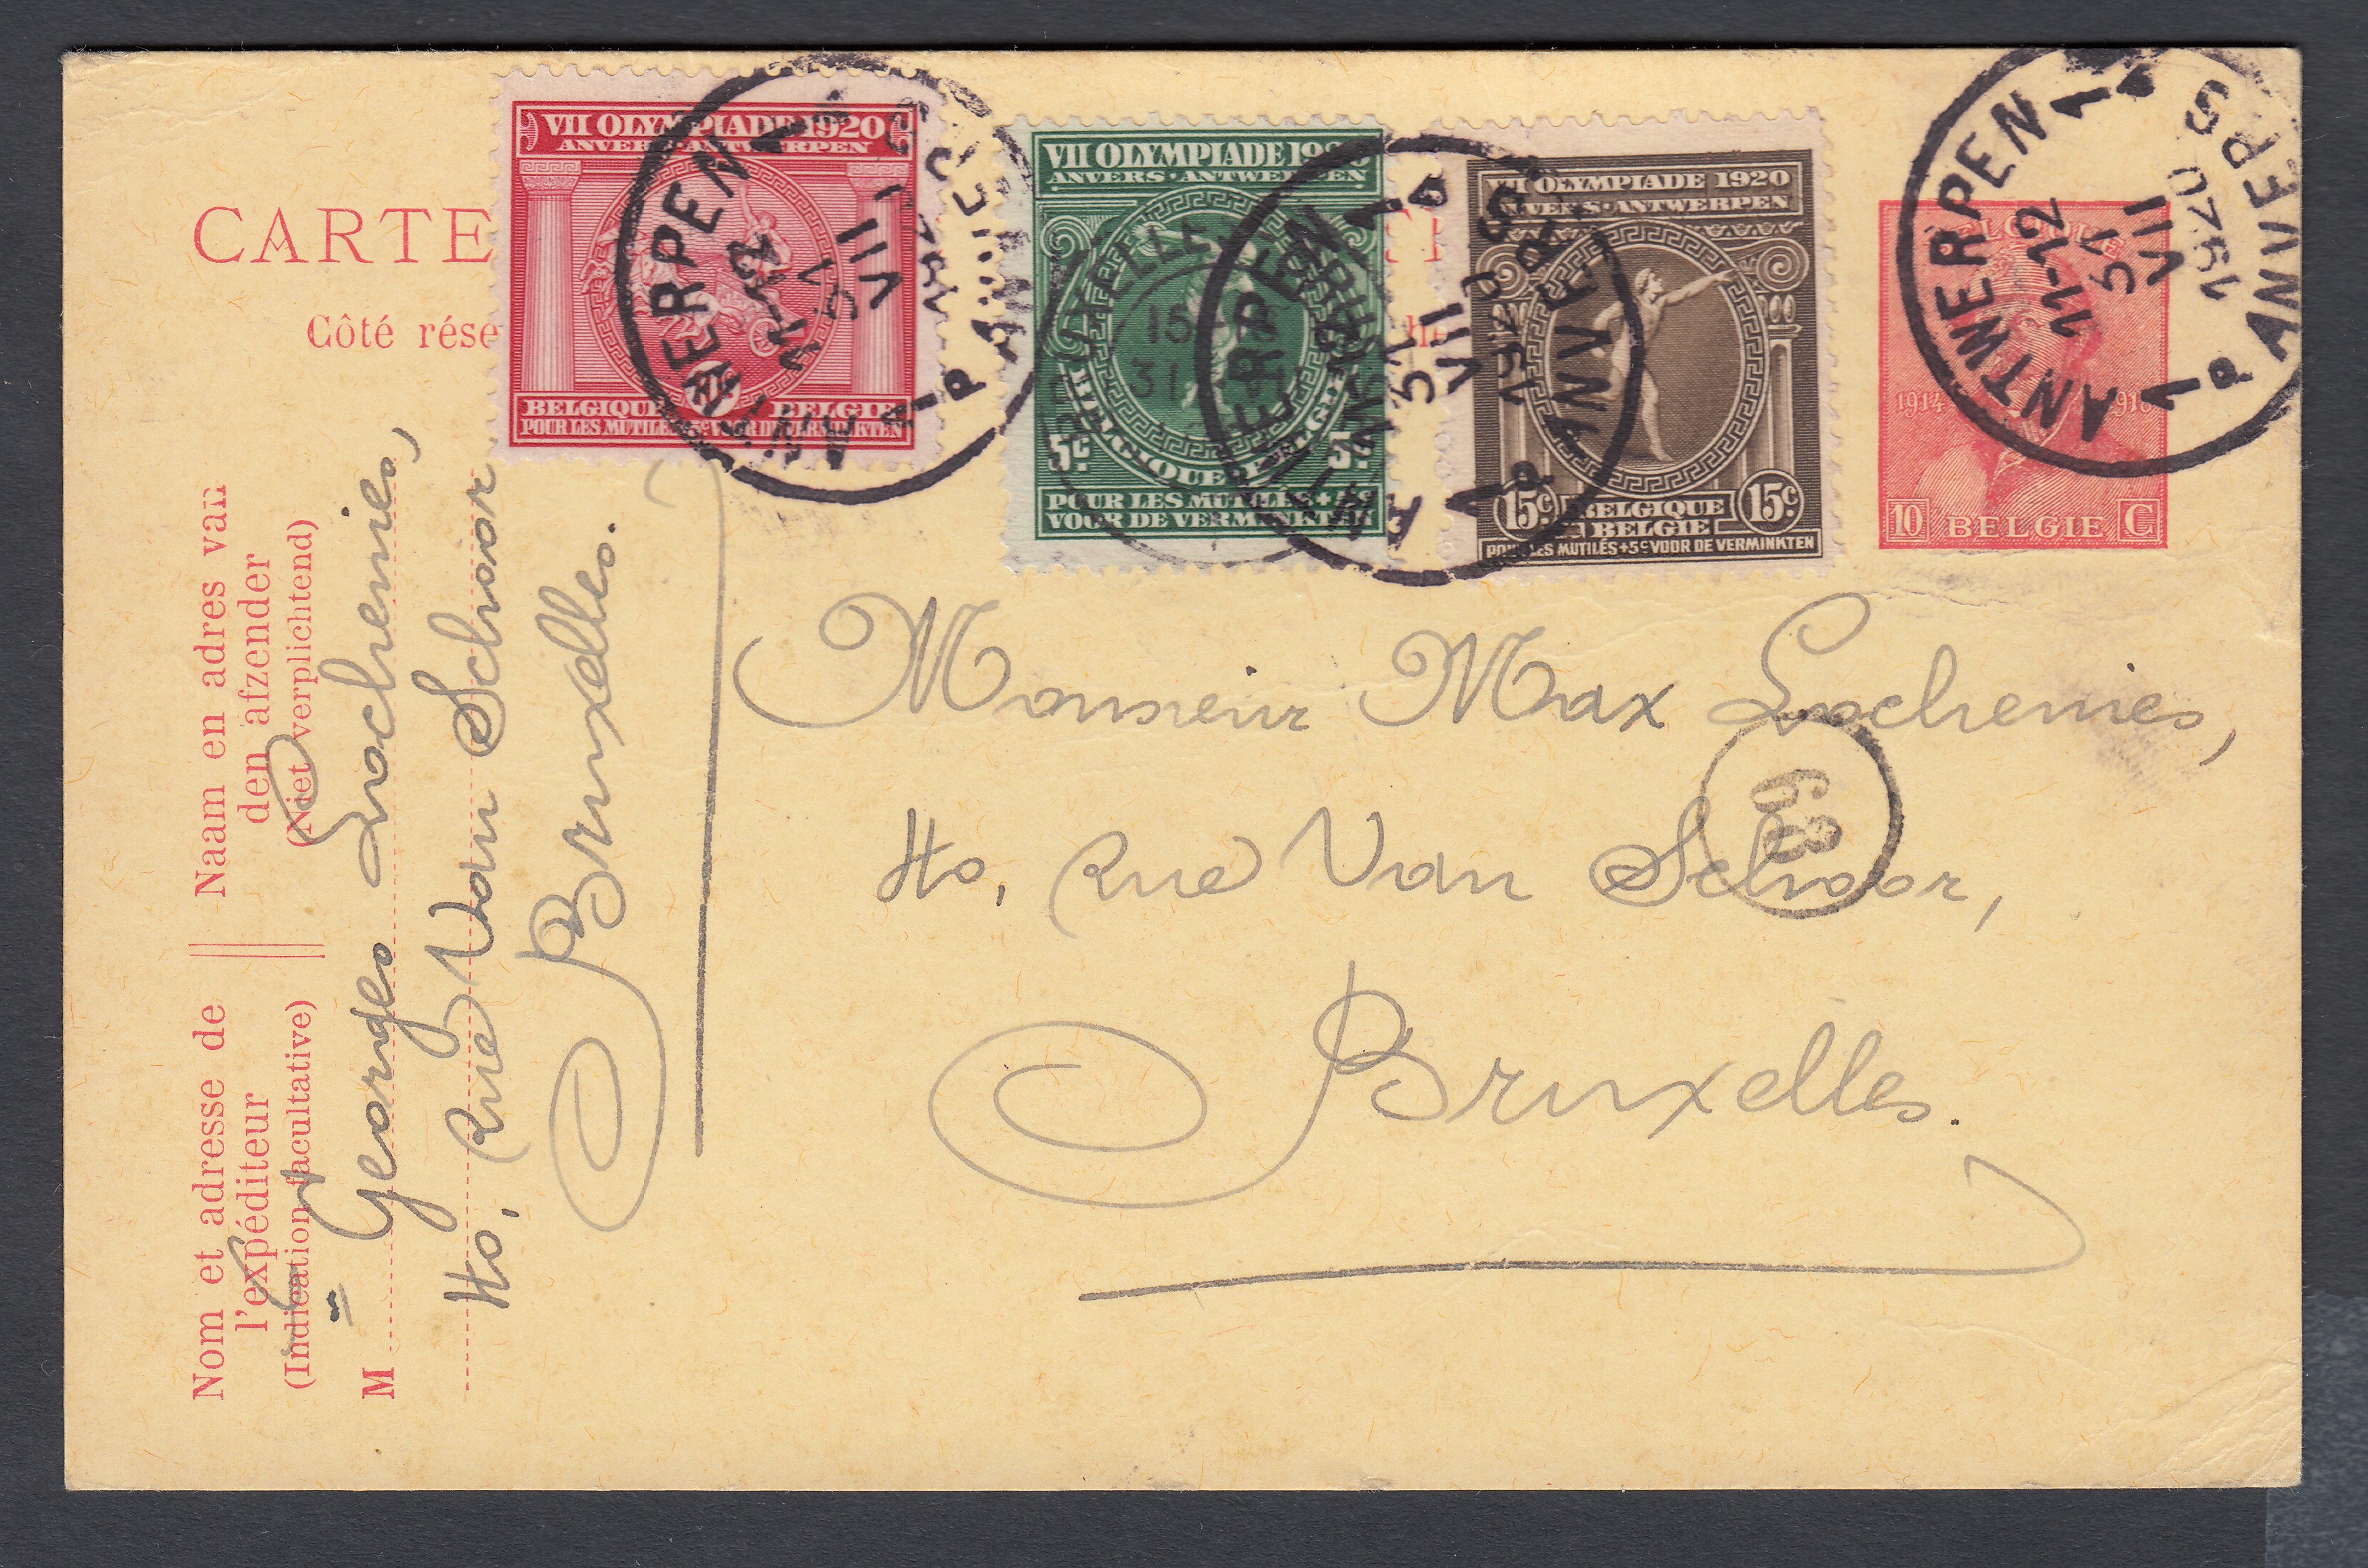 CARTE
Côté rése
VII OLYMPIADE 1920
ANVERS · ANTWERPEN
BELGIQUE BELGIE
POUR LES MUTILÉS 5C VOOR DE VERMINKTEN
VII OLYMPIADE 1920
ANVERS · ANTWERPEN
BELGIQUE BELGIE
5C 5C
POUR LES MUTILÉS +
VOOR DE VERMINKTEN
VII OLYMPIADE 1920
ANVERS · ANTWERPEN
15C BELGIQUE 15C
BELGIE
POUR LES MUTILÉS+5C VOOR DE VERMINKTEN
BELGIQUE
1914 1918
10 BELGIE C
ANTWERPEN 1
11-12
31
VII
1920
1P ANVERS
ANTWERPEN 1
11-12
31
VII
1920
1P ANVERS
ANTWERPEN 1
12
31
VII
1920
1P ANVERS
BRUXELLES
15
31
BRUSSEL
Naam en adres van
den afzender
(Niet verplichtend)
Nom et adresse de
l'expéditeur
(Indication facultative)
M
Georges Lochenies,
40, Rue Van Schoor
Bruxelles.
Monsieur Max Lochenies,
40, Rue Van Schoor,
Bruxelles.
63